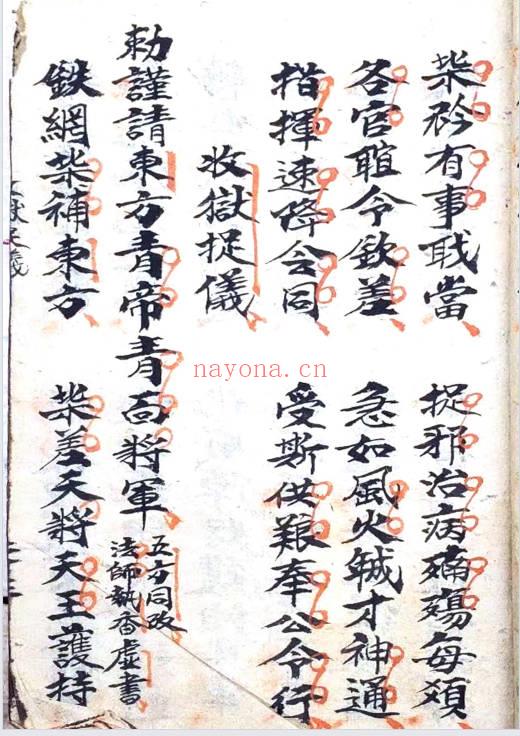 柴矜有事戢當 捉邪治病殤每煩
各官聼令欽差 急如風火才神通
指揮速降令同 受斯供艱奉公令行
收獄捉儀
勅謹請東方青帝青面將軍 五方同改
法師執香虛書
鉄網柴補東方 柴差天將天王護持
nayona.cn